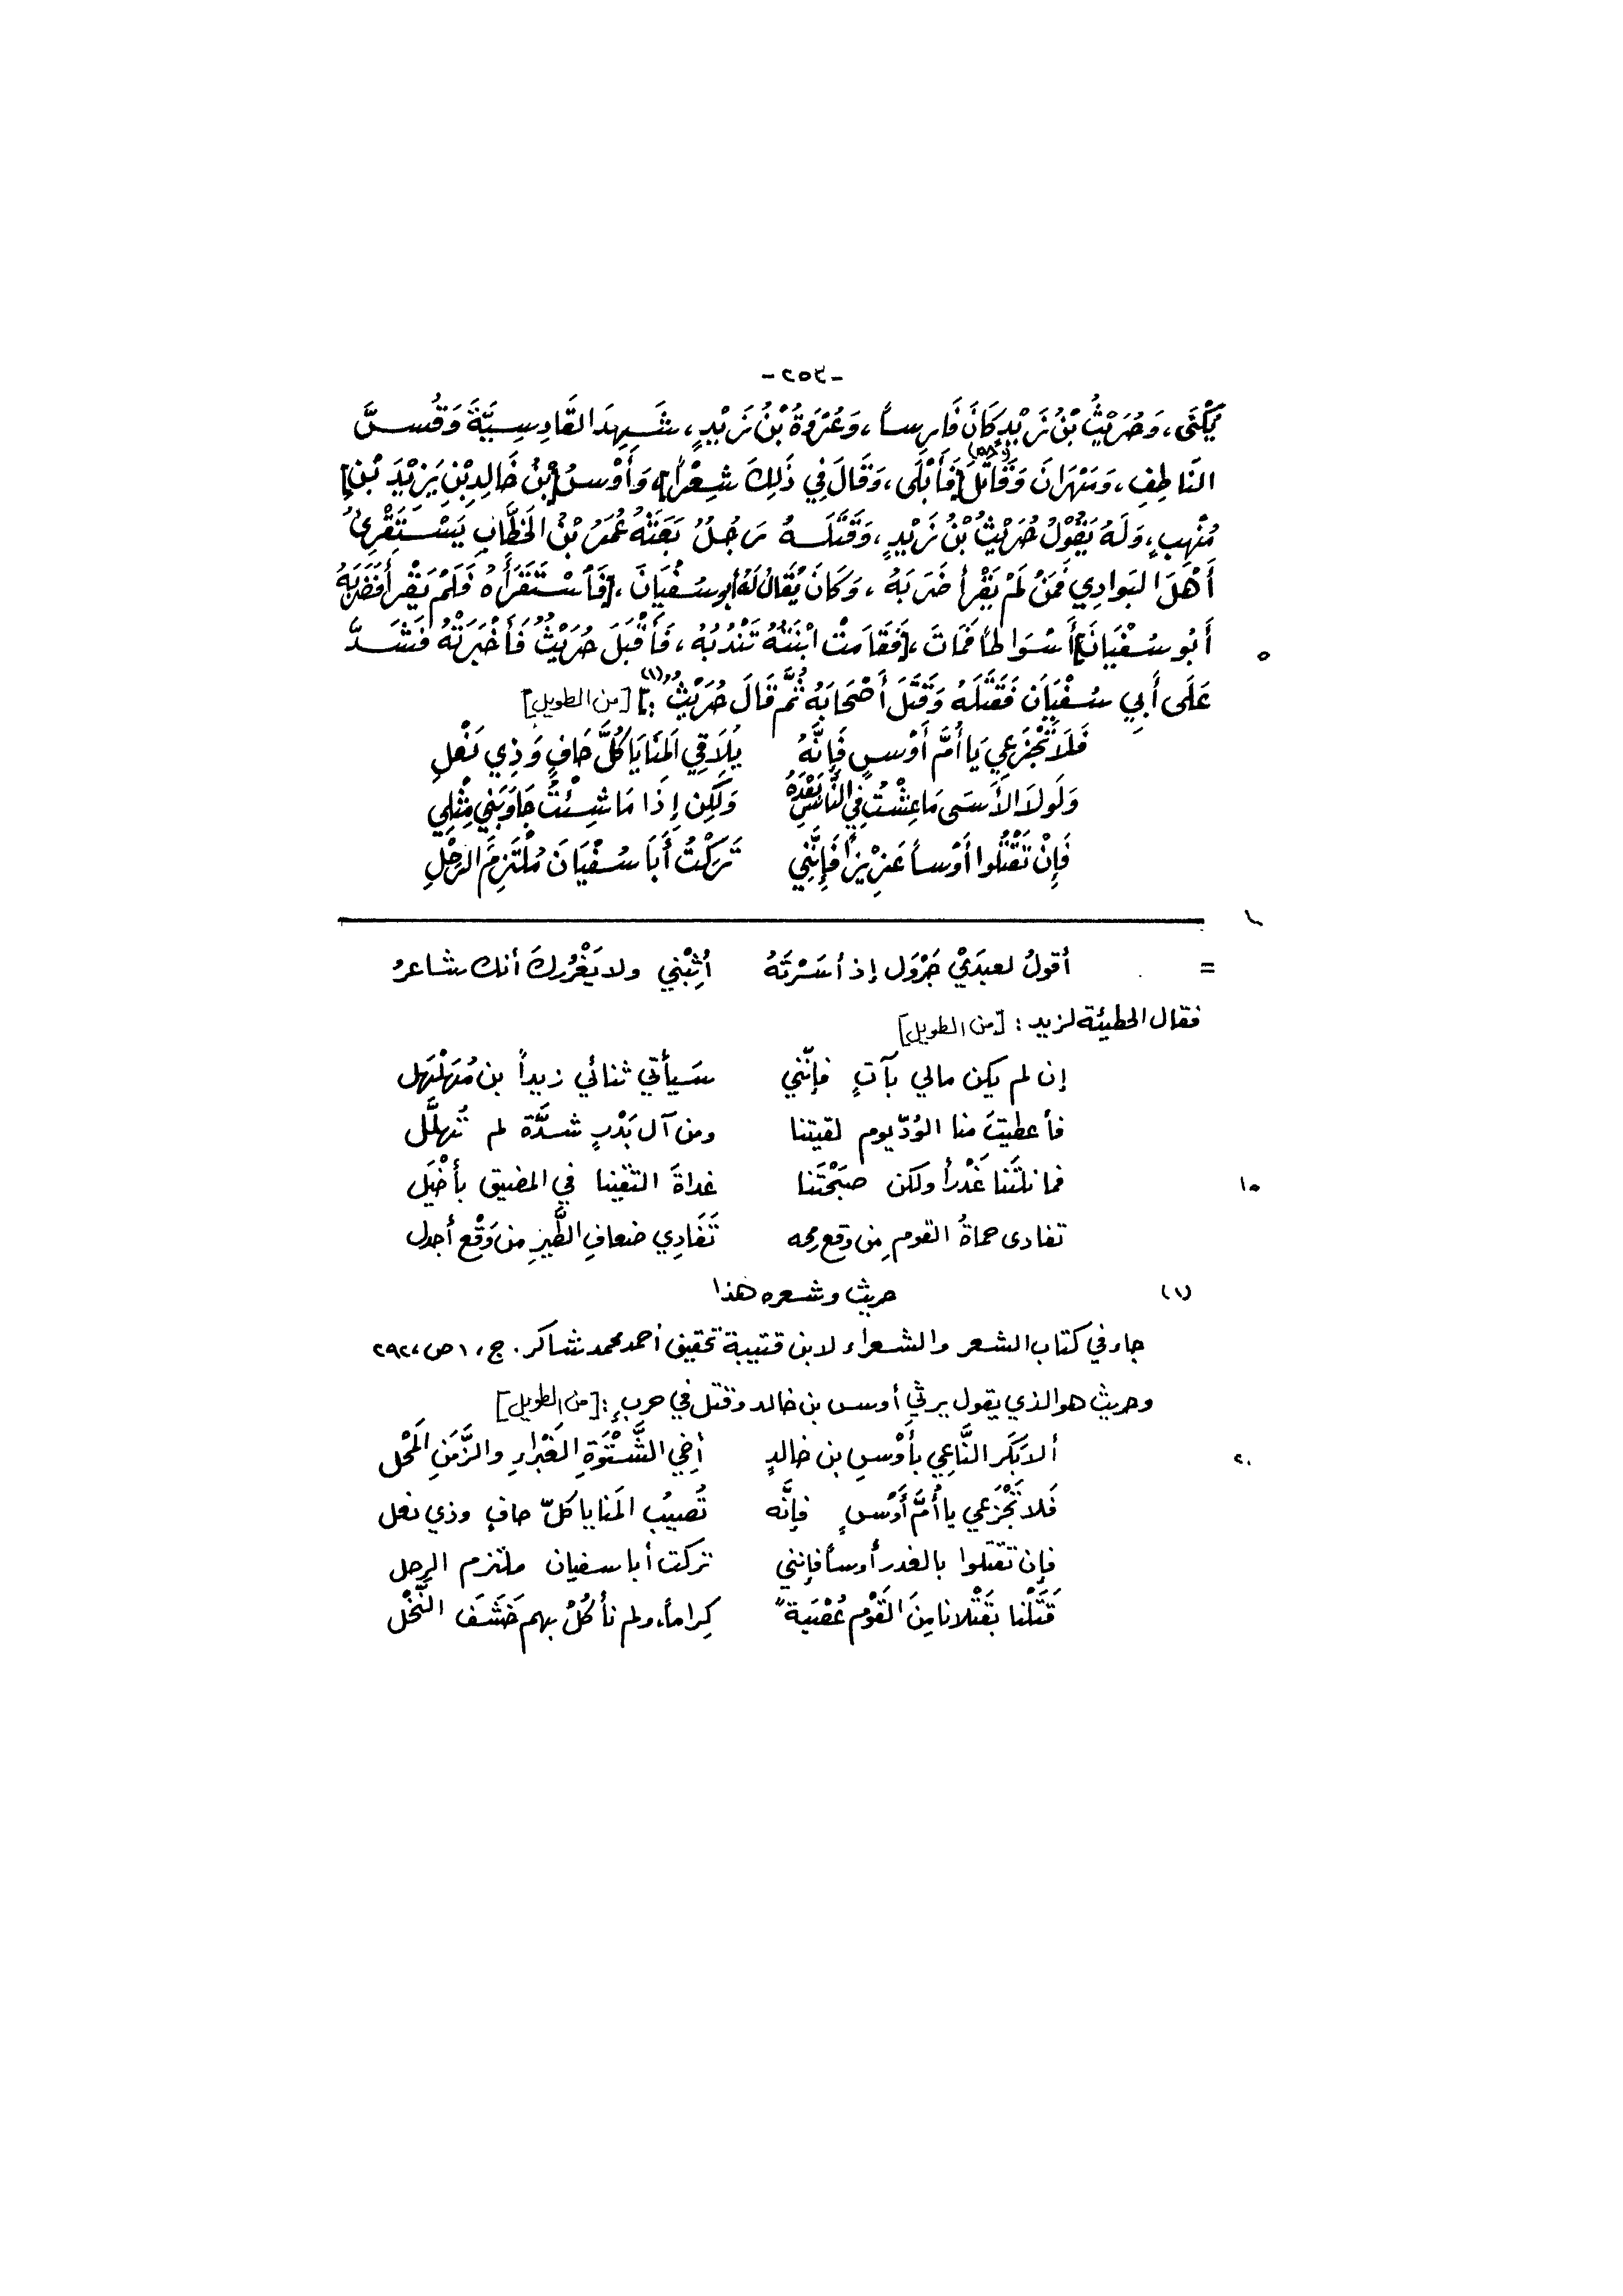 -٢٥٢-
يُكْنَى، وَحُرَيْثُ بْنُ زَيْدٍ كَانَ فَارِساً، وَعُرْوَةُ بْنُ زَيْدٍ، شَهِدَ القَادِسِيَّةَ وَقُسَّ
النَاطِفِ، وَمِهْرَانَ وَقَاتَلَ [فَأَبْلَى، وَقَالَ فِي ذَلِكَ شِعْراً] وَأَوْسُ [بْنُ خَالِدِ بْنِ يَزِيْدَ بْنِ]
مُنْهِبٍ، وَلَهُ يَقُوْلُ حُرَيْثُ بْنُ زَيْدٍ، وَقَتَلَهُ رَجُلٌ بَعَثَهُ عُمَرُ بْنُ الخَطَّابِ يَسْتَقْرِئُ
أَهْلَ البَوادِي فَمَنْ لَمْ يَقْرأ ضَرَبَهُ، وَكَانَ يُقَالُ لَهُ أبو سُفْيَانَ، [فَاسْتَقْرَأَهُ فَلَمْ يَقْرأ فَضَرَبَهُ
أَبُو سُفْيَانَ] أَسْوَاطاً فَمَاتَ، [فَقَامَتْ ابْنَتُهُ تَنْدُبُهُ، فَأَقْبَلَ حُرَيْثٌ فَأَخْبَرَتْهُ فَشَدَّ
٥
عَلَى أَبِي سُفْيَانَ فَقَتَلَهُ وَقَتَلَ أَصْحَابَهُ ثُمَّ قَالَ حُرَيْثٌ:](١) [من الطويل]
فَلَا تَجْزَعِي يَا أُمَّ أَوْسٍ فَإِنَّهُ يُلَاقِي المَنَايَا كُلُّ حَافٍ وَذِي نَعْلِ
وَلَولَا الأَسَى مَا عِشْتُ فِي النَّاسِ بَعْدَهُ وَلَكِن إِذَا مَا شِئْتُ جَاوَبَنِي مِثْلِي
فَإِنْ تَقْتُلُوا أَوْساً عَزِيْزاً فَإِنَّنِي تَرَكْتُ أَبَا سُفْيَانَ مُلْتَزِمَ الرَحْلِ
= أقولُ لعبدَيْ جَرْوَل إذ أسَرْتَهُ أثِبْني ولا يَغْرُركَ أنك شاعرُ
فقال الحطيئة لزيد: [من الطويل]
إن لم يكن مالي بآتٍ فإنّني سَيأتي ثنائي زيداً بن مُهَلْهَل
فأعطيتَ منا الوُدّ يوم لقيتنا ومن آل بَدْرٍ شدَّة لم تُهلَّل
فما نلتَنا غَدْراً ولكن صَبَحْتَنا غداةَ التقينا في المضيق بأخْيَل
١٥
تفادى حماةُ القومِ مِن وقع رمحه تَفَادِي ضعافِ الطَّيرِ من وَقْع أجدل
(١) حريث وشعره هذا
جاء في كتاب الشعر والشعراء لابن قتيبة تحقيق أحمد محمد شاكر. ج، ١ ص، ٢٩٢
وحريث هو الذي يقول يرثي أوس بن خالد وقتل في حربٍ: [من الطويل]
ألا بَكَر النَّاعِي بأوْسِ بن خالدٍ أخِي الشَّتْوَةِ الغَبْراءِ والزَّمَنِ المَحْل
٢٠
فَلا تَجْزَعي يا أُمَّ أَوْسٍ فإنَّه تُصيبُ المَنايا كلّ حافٍ وذي نعل
فإن تقتلوا بالغدر أوساً فإنني تركت أبا سفيان ملتزم الرحل
قَتَلْنا بقَتْلانا مِنَ القَوْمِ عُصْبَةً كِراماً، ولم نأكُلْ بهم حَشَفَ النَّخْل